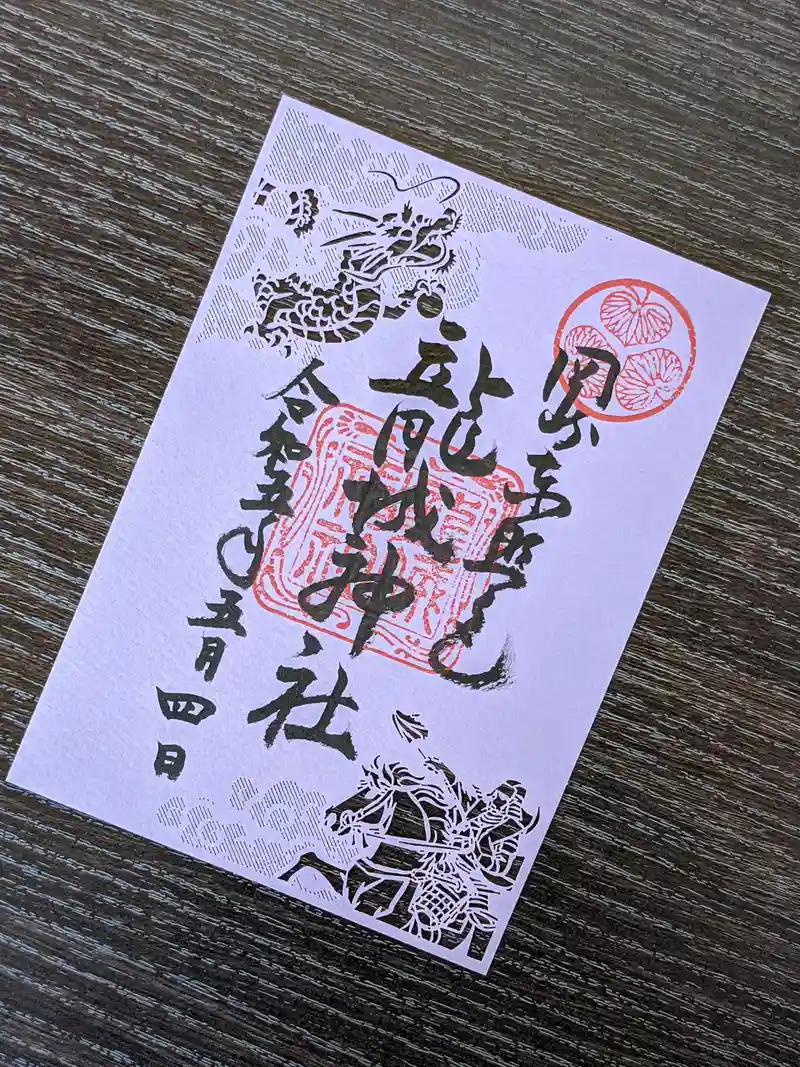 岡崎東照宮
龍城神社
令和五年五月四日